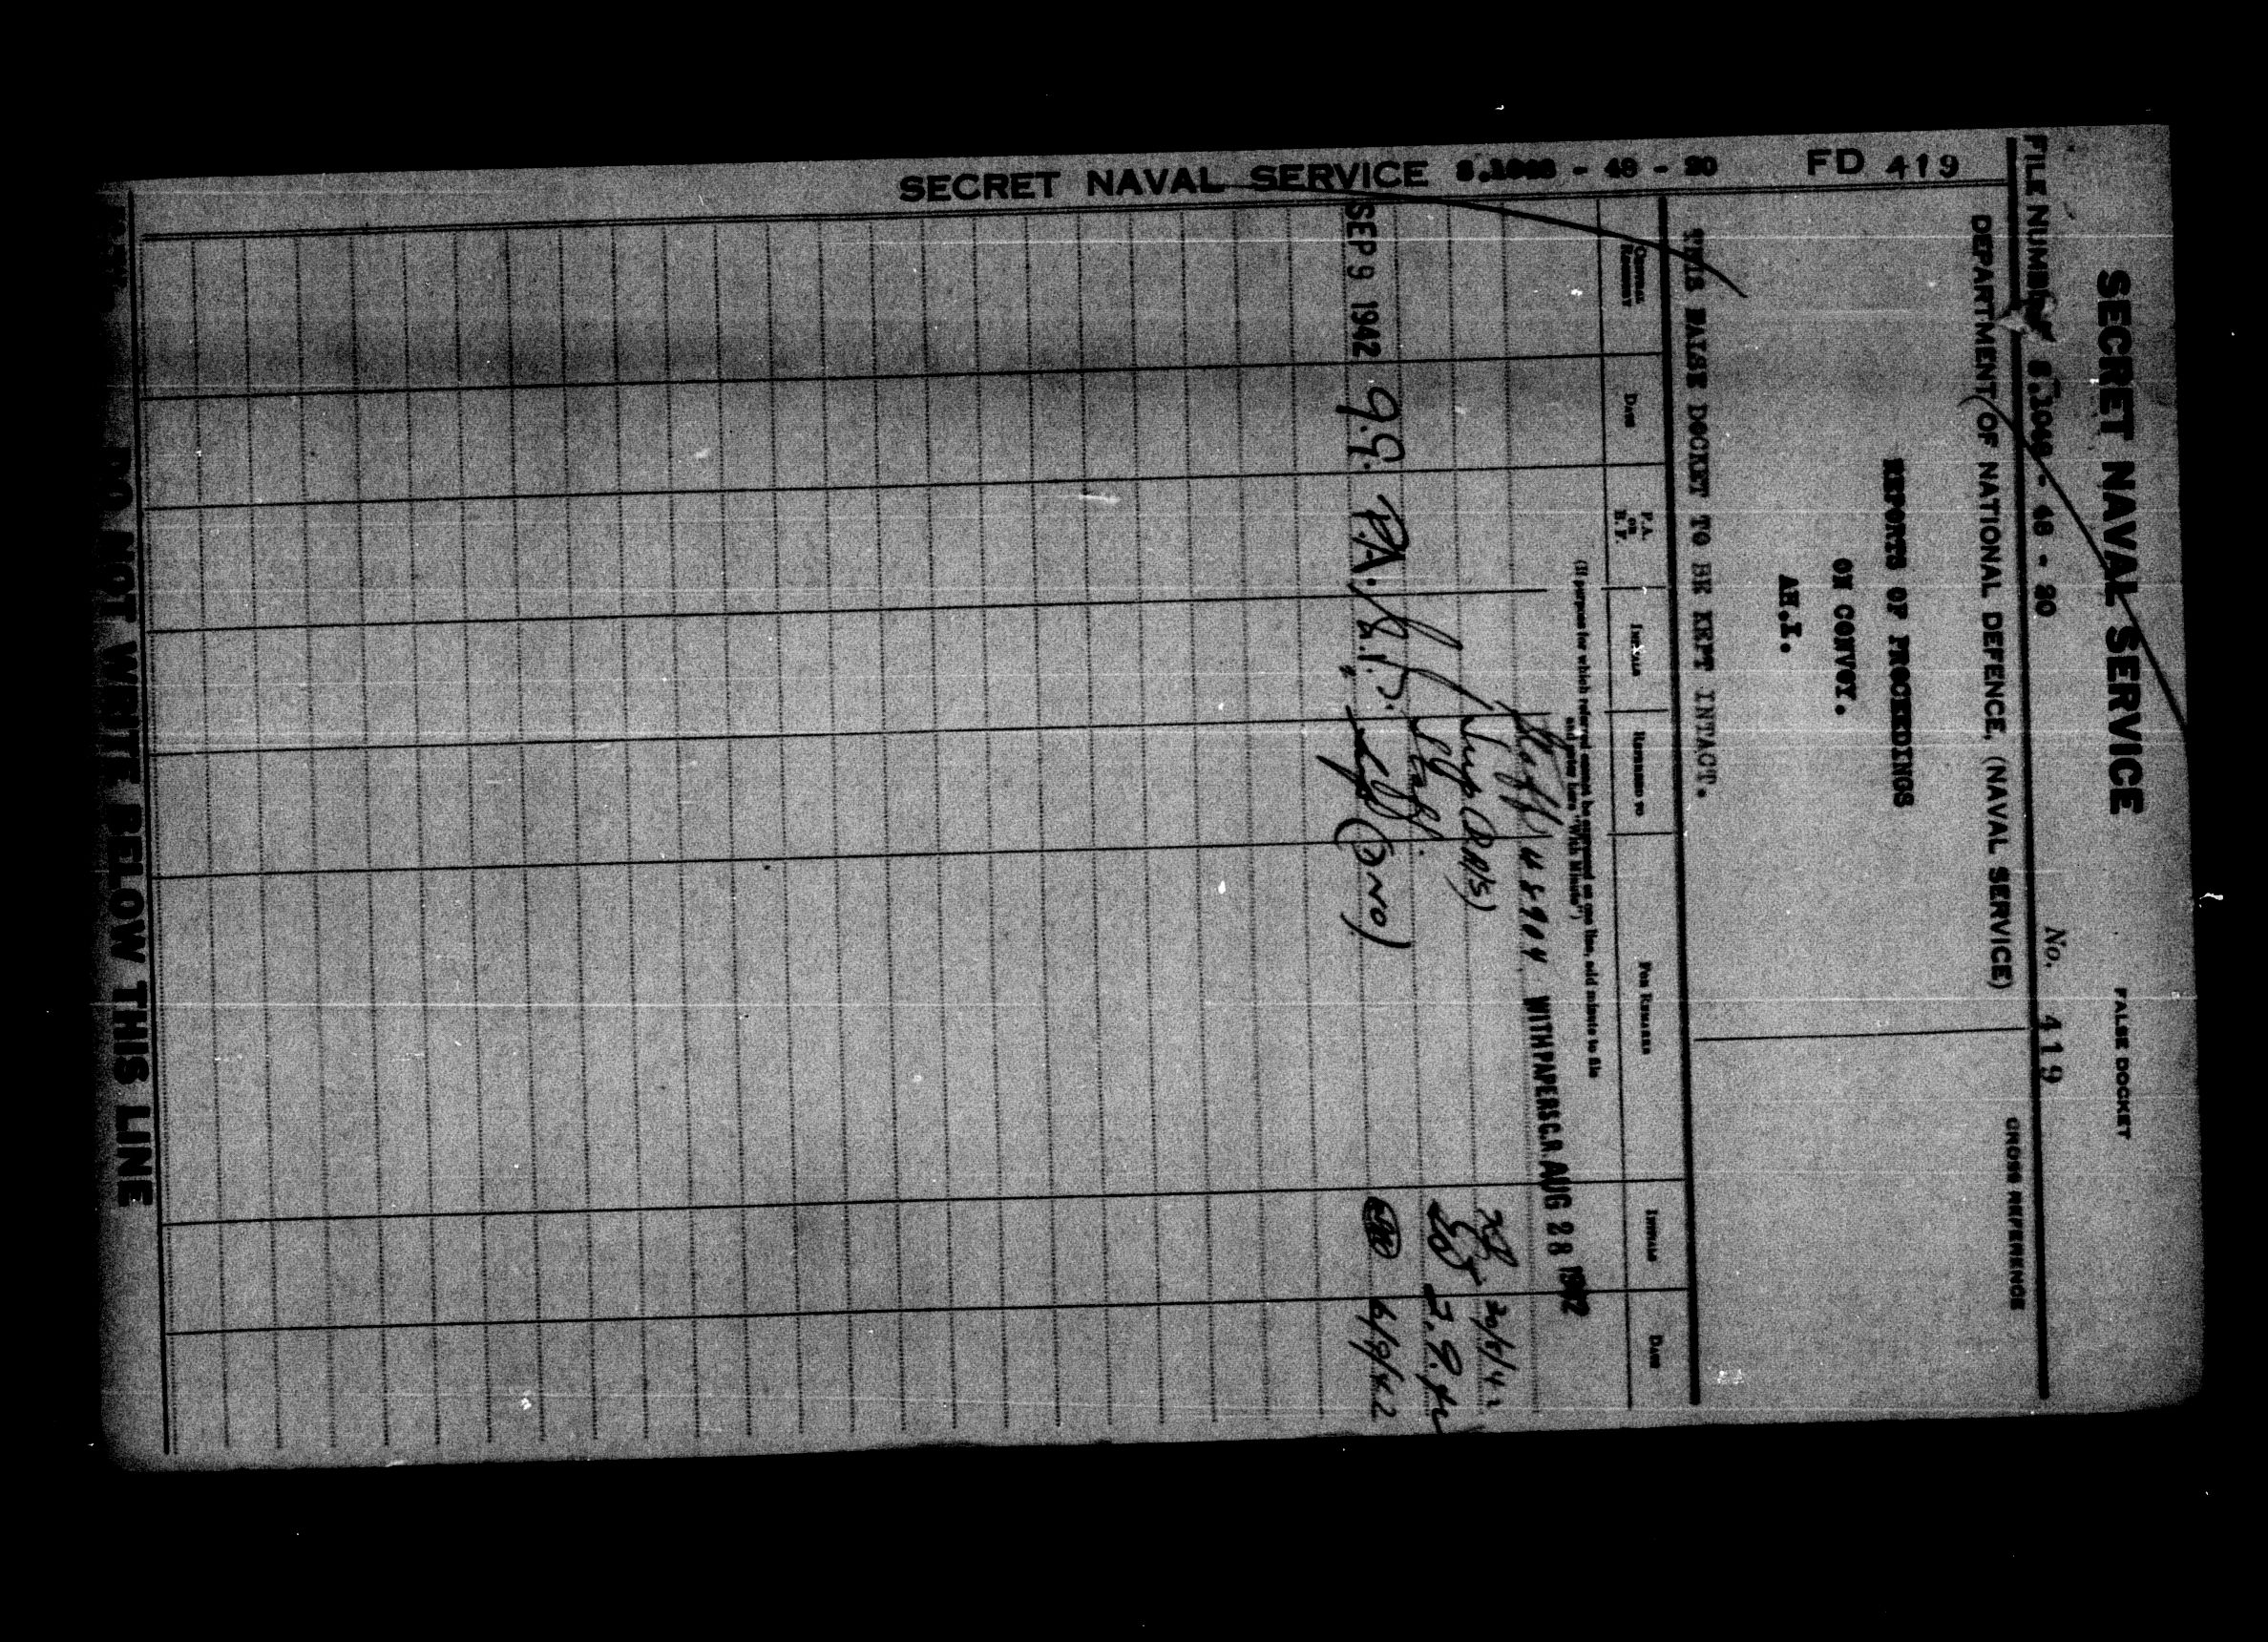 SECRET NAVAL SERVICE S.1048 - 48 - 20 FD 419
SECRET NAVAL SERVICE
FALSE DOCKET
FILE NUMBER S.1048 - 48 - 20 No. 419
DEPARTMENT OF NATIONAL DEFENCE, (NAVAL SERVICE)
CROSS REFERENCE
REPORTS OF PROCEEDINGS
ON CONVOY.
AH.I.
THIS FALSE DOCKET TO BE KEPT INTACT.
DATE P.A. OR B.F. INITIALS REFERRED TO FOR REMARKS INITIALS DATE
(If purpose for which referred cannot be expressed on one line, add minute to file and enter here "With Minute")
WITH PAPERS C.R. AUG 28 1942
Staff.
2.9.42
SEP 9 1942 9.9. P.A. 6/9/42
DO NOT WRITE BELOW THIS LINE